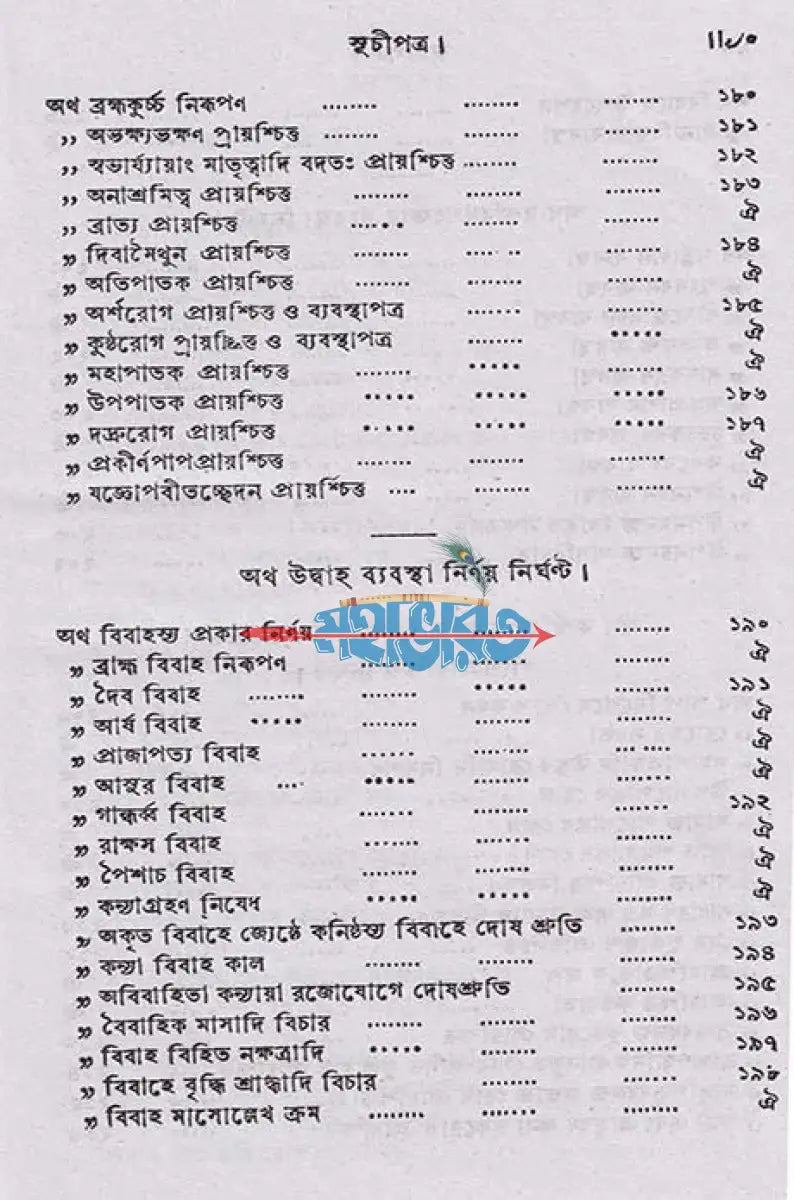 স্থচীপত্র। ॥৶০
অথ ব্রহ্মকুর্চ্চ নিরূপণ ........ ........ ........ ১৮০
,, অভক্ষ্যভক্ষণ প্রায়শ্চিত্ত ........ ........ ........ ১৮১
,, স্বভার্য্যায়াং মাতৃত্বাদি বদতঃ প্রায়শ্চিত্ত ........ ........ ১৮২
,, অনাশ্রমিত্ব প্রায়শ্চিত্ত ........ ........ ........ ১৮৩
,, ব্রাত্য প্রায়শ্চিত্ত ........ ........ ........ ঐ
,, দিবামৈথুন প্রায়শ্চিত্ত ........ ........ ........ ১৮৪
,, অতিপাতক প্রায়শ্চিত্ত ........ ........ ........ ঐ
,, অর্শরোগ প্রায়শ্চিত্ত ও ব্যবস্থাপত্র ........ ........ ১৮৫
,, কুষ্ঠরোগ প্রায়শ্চিত্ত ও ব্যবস্থাপত্র ........ ..... ঐ
,, মহাপাতক প্রায়শ্চিত্ত ........ ..... ........ ঐ
,, উপপাতক প্রায়শ্চিত্ত ..... ..... ..... ১৮৬
,, দদ্রুরোগ প্রায়শ্চিত্ত ..... ..... ..... ১৮৭
,, প্রকীর্ণপাপপ্রায়শ্চিত্ত ........ ........ ........ ঐ
,, যজ্ঞোপবীতচ্ছেদন প্রায়শ্চিত্ত .... ........ ........ ঐ
অথ উদ্বাহ ব্যবস্থা নির্ণয় নির্ঘণ্ট।
অথ বিবাহস্য প্রকার নির্ণয় ........ ....... ........ ১৯০
মহাভারত
,, ব্রাহ্ম বিবাহ নিরূপণ ........ ....... ........ ঐ
,, দৈব বিবাহ ........ ........ ..... ........ ১৯১
,, আর্ষ বিবাহ ..... ........ ........ ........ ঐ
,, প্রাজাপত্য বিবাহ ...... ....... ... .... ঐ
,, আসুর বিবাহ ... ..... ........ ........ ঐ
,, গান্ধর্ব্ব বিবাহ ....... ....... ....... ১৯২
,, রাক্ষস বিবাহ ....... ....... ........ ঐ
,, পৈশাচ বিবাহ ....... ....... ........ ঐ
,, কন্যাগ্রহণ নিষেধ ..... ..... ....... ঐ
,, অকৃত বিবাহে জ্যেষ্ঠে কনিষ্ঠস্য বিবাহে দোষ শ্রুতি ....... ১৯৩
,, কন্যা বিবাহ কাল ........ ........ ........ ১৯৪
,, অবিবাহিতা কন্যায়া রজোযোগে দোষশ্রুতি ........ ১৯৫
,, বৈবাহিক মাসাদি বিচার ........ ....... ........ ১৯৬
,, বিবাহ বিহিত নক্ষত্রাদি ..... ....... ........ ১৯৭
,, বিবাহে বৃদ্ধি শ্রাদ্ধাদি বিচার ........ ........ ১৯৮
,, বিবাহ মাসোল্লেখ ক্রম ........ ........ ........ ঐ